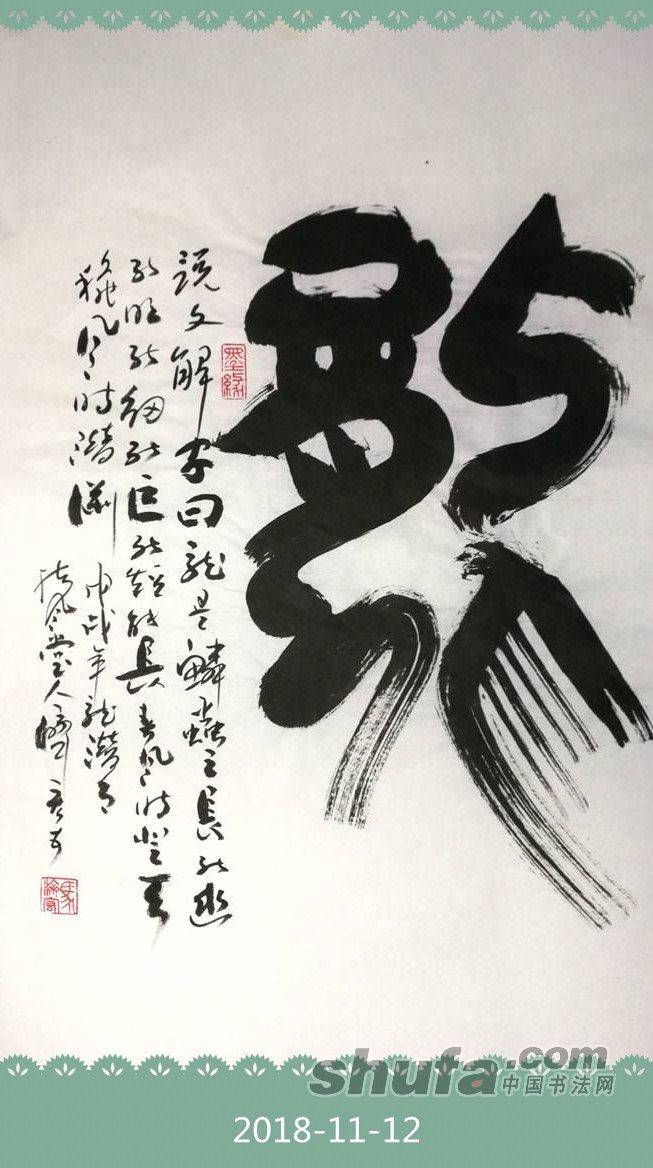 龍
說文解字曰龙是鱗蟲之長能幽
能明能細能巨能短能長春风时登天
秋风时潛渊 戊戌年龙潛月
风堂人
墨缘
shufa.com
中国书法网
2018-11-12